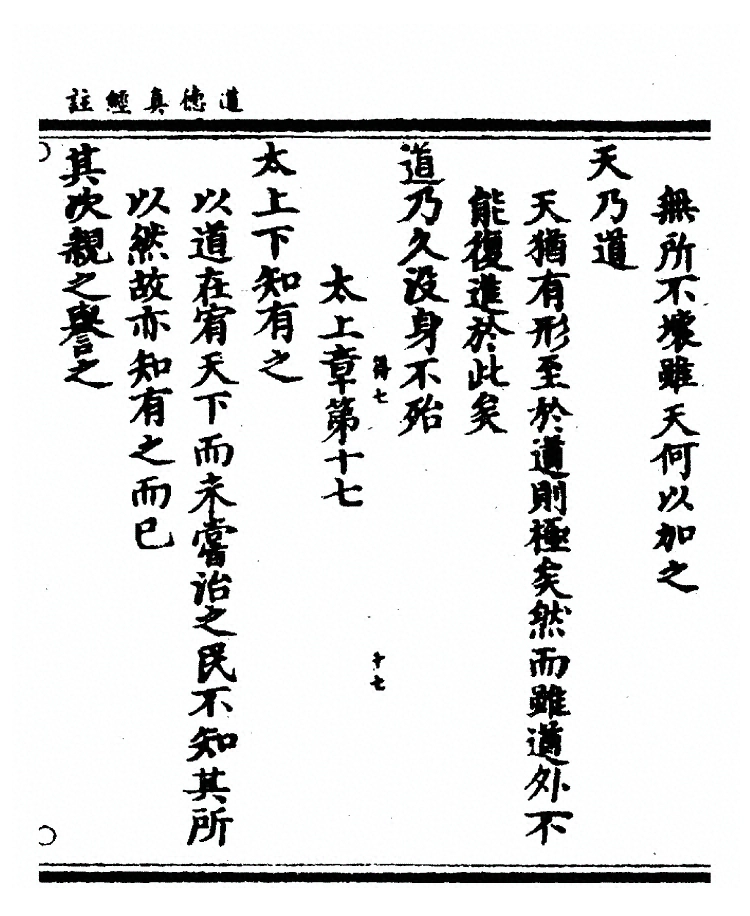 道德真經註
無所不壞雖天何以加之
天乃道
天猶有形至於道則極矣然而雖道外不
能復進於此矣
道乃久没身不殆
得七
十七
太上章第十七
太上下知有之
以道在宥天下而未嘗治之民不知其所
以然故亦知有之而已
其次親之譽之